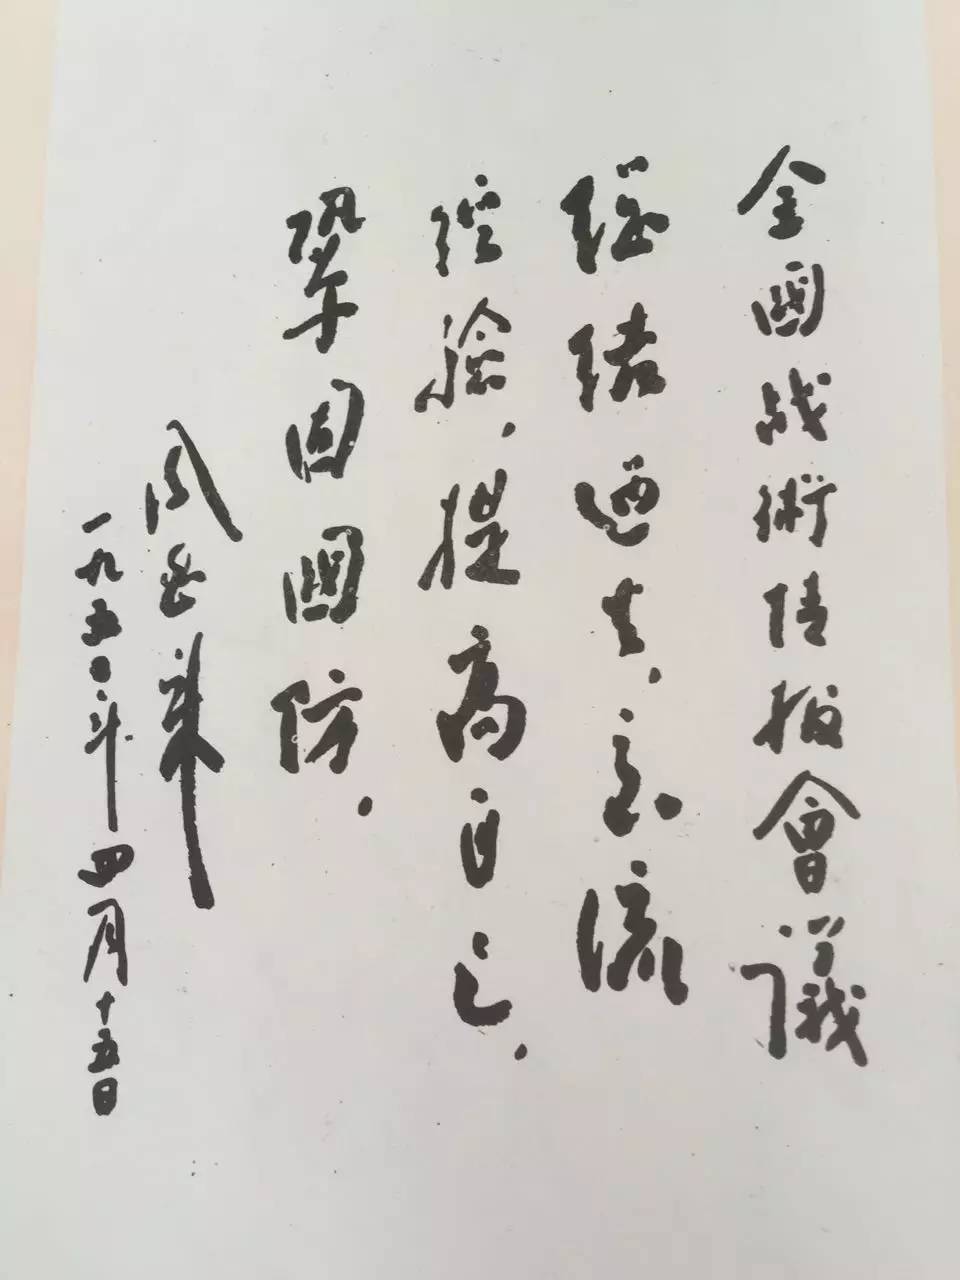 全國战術情报會議
總結過去，交流
经验，提高自己，
鞏固國防。
周恩来
一九五〇年四月十五日